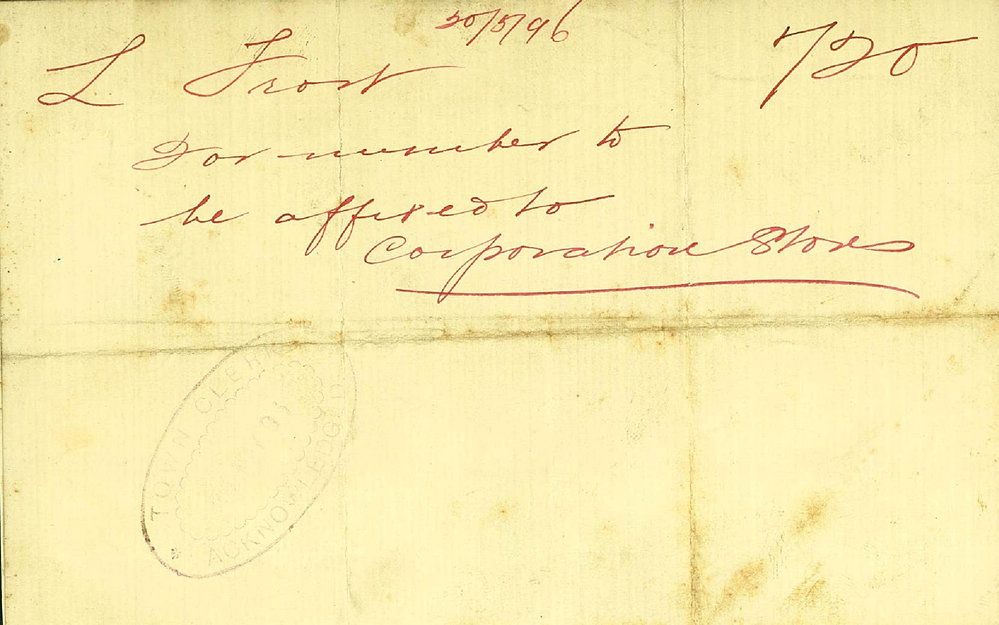 30/5/96
L Frost 720
For number to
be affixed to
Corporation Stores
TOWN CLERK
ACKNOWLEDGED